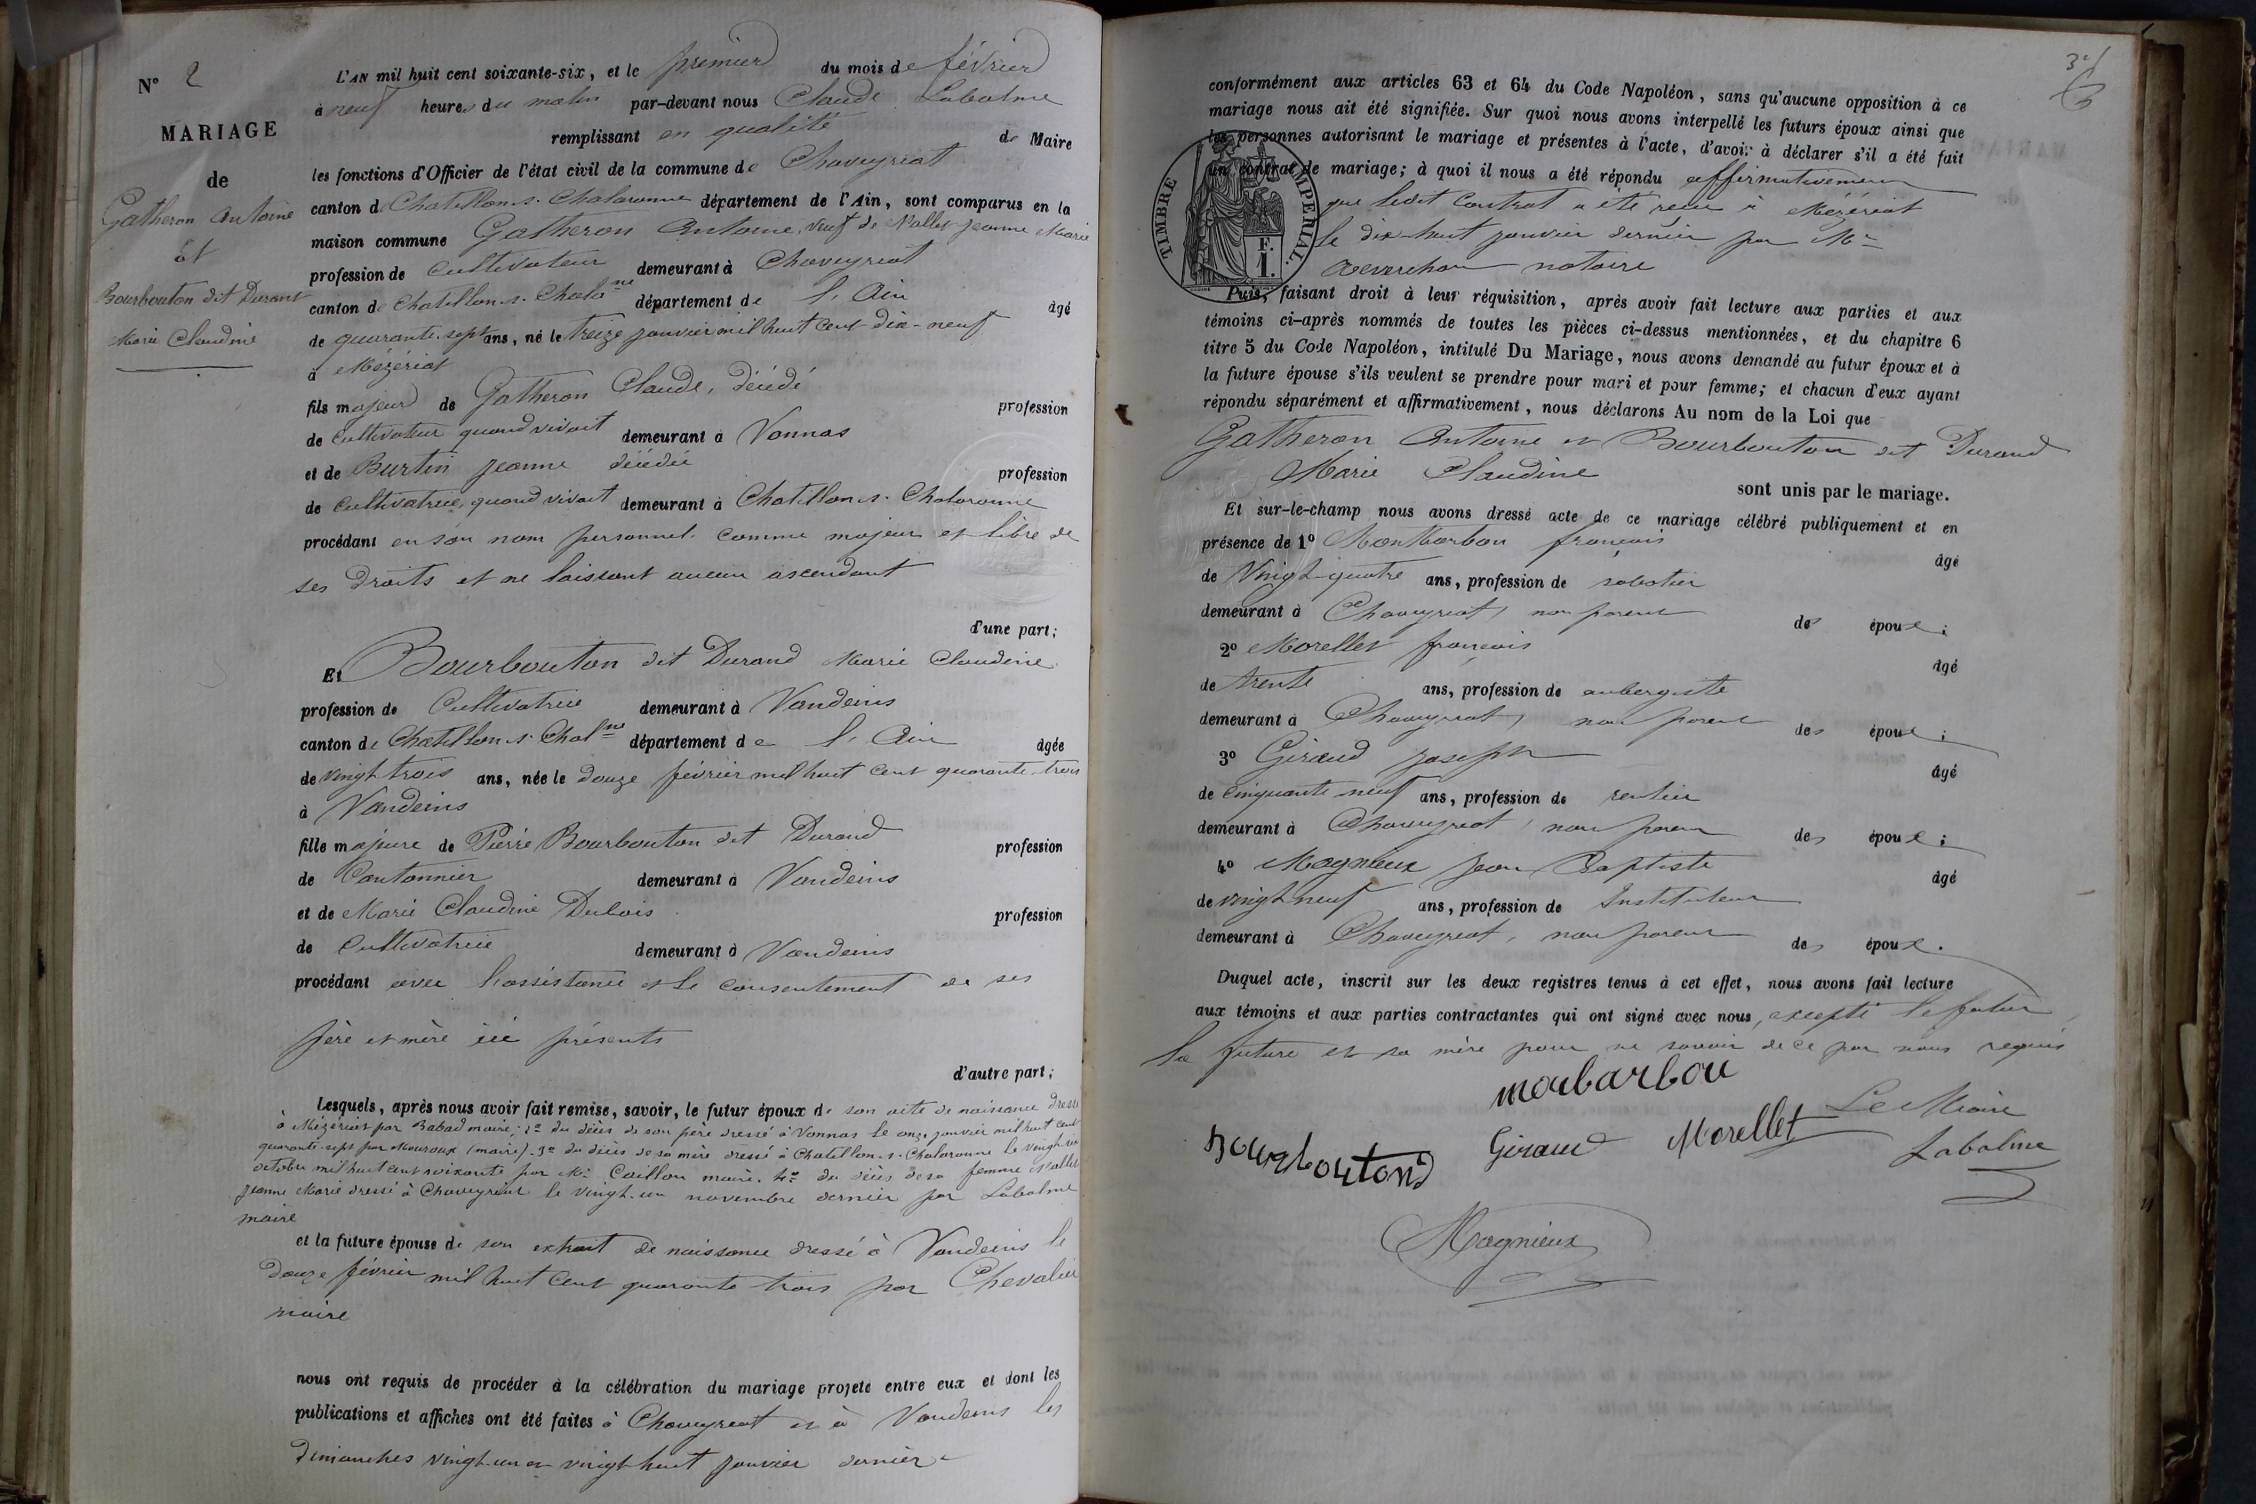 N° 2
MARIAGE
de
Gatheron Antoine
et
Bourbouton dit Durand
Marie Claudine
L'AN mil huit cent soixante-six, et le premier du mois de février
à neuf heures du matin par-devant nous Claude Labalme
remplissant en qualité de Maire
les fonctions d'Officier de l'état civil de la commune de Chaveyriat
canton de Chatillon s. Chalaronne département de l'Ain, sont comparus en la
maison commune Gatheron Antoine, veuf de Nallet Jeanne Marie
profession de cultivateur demeurant à Chaveyriat
canton de Chatillon s. Chalane département de l'Ain âgé
de quarante-sept ans, né le treize janvier mil huit cent dix-neuf
à Mézériat
fils majeur de Gatheron Claude, décédé
profession
de cultivateur quand vivait demeurant à Vonnas
et de Burtin Jeanne décédée
profession
de cultivatrice, quand vivait demeurant à Chatillon s. Chalaronne
procédant en son nom personnel comme majeur et libre de
ses droits et ne laissant aucun ascendant
d'une part;
Et Bourbouton dit Durand Marie Claudine
profession de Cultivatrice demeurant à Vandeins
canton de Chatillon s. Chalne département de l'Ain âgée
de vingt trois ans, née le douze février mil huit cent quarante-trois
à Vandeins
fille majeure de Pierre Bourbouton dit Durand
profession
de Cantonnier demeurant à Vandeins
et de Marie Claudine Dubois
profession
de Cultivatrice demeurant à Vandeins
procédant avec l'assistance et le consentement de ses
père et mère ici présents
d'autre part;
Lesquels, après nous avoir fait remise, savoir, le futur époux de son acte de naissance dressé
à Mézériat par Babad maire; 2° du décès de son père dressé à Vonnas le onze janvier mil huit cent
quarante-sept par Mouroux (maire). 3° du décès de sa mère dressé à Chatillon s. Chalaronne le vingt-un
octobre mil huit cent soixante par Mr Caillon maire. 4° du décès de sa femme Nallet
Jeanne Marie dressé à Chaveyriat le vingt-un novembre dernier par Labalme
maire
et la future épouse de son extrait de naissance dressé à Vandeins le
douze février mil huit cent quarante trois par Chevalier
maire
nous ont requis de procéder à la célébration du mariage projeté entre eux et dont les
publications et affiches ont été faites à Chaveyriat et à Vandeins les
dimanches vingt-un et vingt huit janvier dernier
conformément aux articles 63 et 64 du Code Napoléon, sans qu'aucune opposition à ce
mariage nous ait été signifiée. Sur quoi nous avons interpellé les futurs époux ainsi que
les personnes autorisant le mariage et présentes à l'acte, d'avoir à déclarer s'il a été fait
un contrat de mariage; à quoi il nous a été répondu affirmativement
que ledit Contrat a été reçu à Mézériat
le dix-huit janvier dernier par Me
Reverchon notaire
TIMBRE IMPERIAL.
F.
1.
Puis, faisant droit à leur réquisition, après avoir fait lecture aux parties et aux
témoins ci-après nommés de toutes les pièces ci-dessus mentionnées, et du chapitre 6
titre 5 du Code Napoléon, intitulé Du Mariage, nous avons demandé au futur époux et à
la future épouse s'ils veulent se prendre pour mari et pour femme; et chacun d'eux ayant
répondu séparément et affirmativement, nous déclarons Au nom de la Loi que
Gatheron Antoine et Bourbouton dit Durand
Marie Claudine
sont unis par le mariage.
Et sur-le-champ nous avons dressé acte de ce mariage célébré publiquement et en
présence de 1° Montbarbon françois
âgé
de Vingt-quatre ans, profession de sabotier
demeurant à Chaveyriat, non parent des époux;
2° Morellet françois
âgé
de trente ans, profession de aubergiste
demeurant à Chaveyriat, non parent des époux;
3° Giraud Joseph
âgé
de cinquante neuf ans, profession de rentier
demeurant à Chaveyriat, non parent des époux;
4° Magnieux Jean Baptiste
âgé
de vingt neuf ans, profession de Instituteur
demeurant à Chaveyriat, non parent des époux.
Duquel acte, inscrit sur les deux registres tenus à cet effet, nous avons fait lecture
aux témoins et aux parties contractantes qui ont signé avec nous, excepté le futur
la future et sa mère pour ne savoir de ce par nous requis
moubarbou
Le Maire
Bourboutond Giraud Morellet Labalme
Magnieux